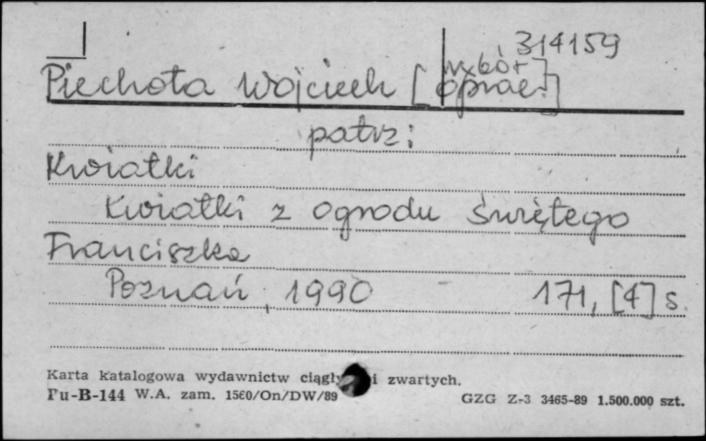 314159
Piechota Wojciech [wybór]
[oprac.]
patrz:
Kwiatki
Kwiatki z ogrodu świętego
Franciszka
Poznań, 1990 171, [4] s.
Karta katalogowa wydawnictw ciągły i zwartych.
Pu-B-144 W.A. zam. 1560/On/DW/89 GZG Z-3 3465-89 1.500.000 szt.